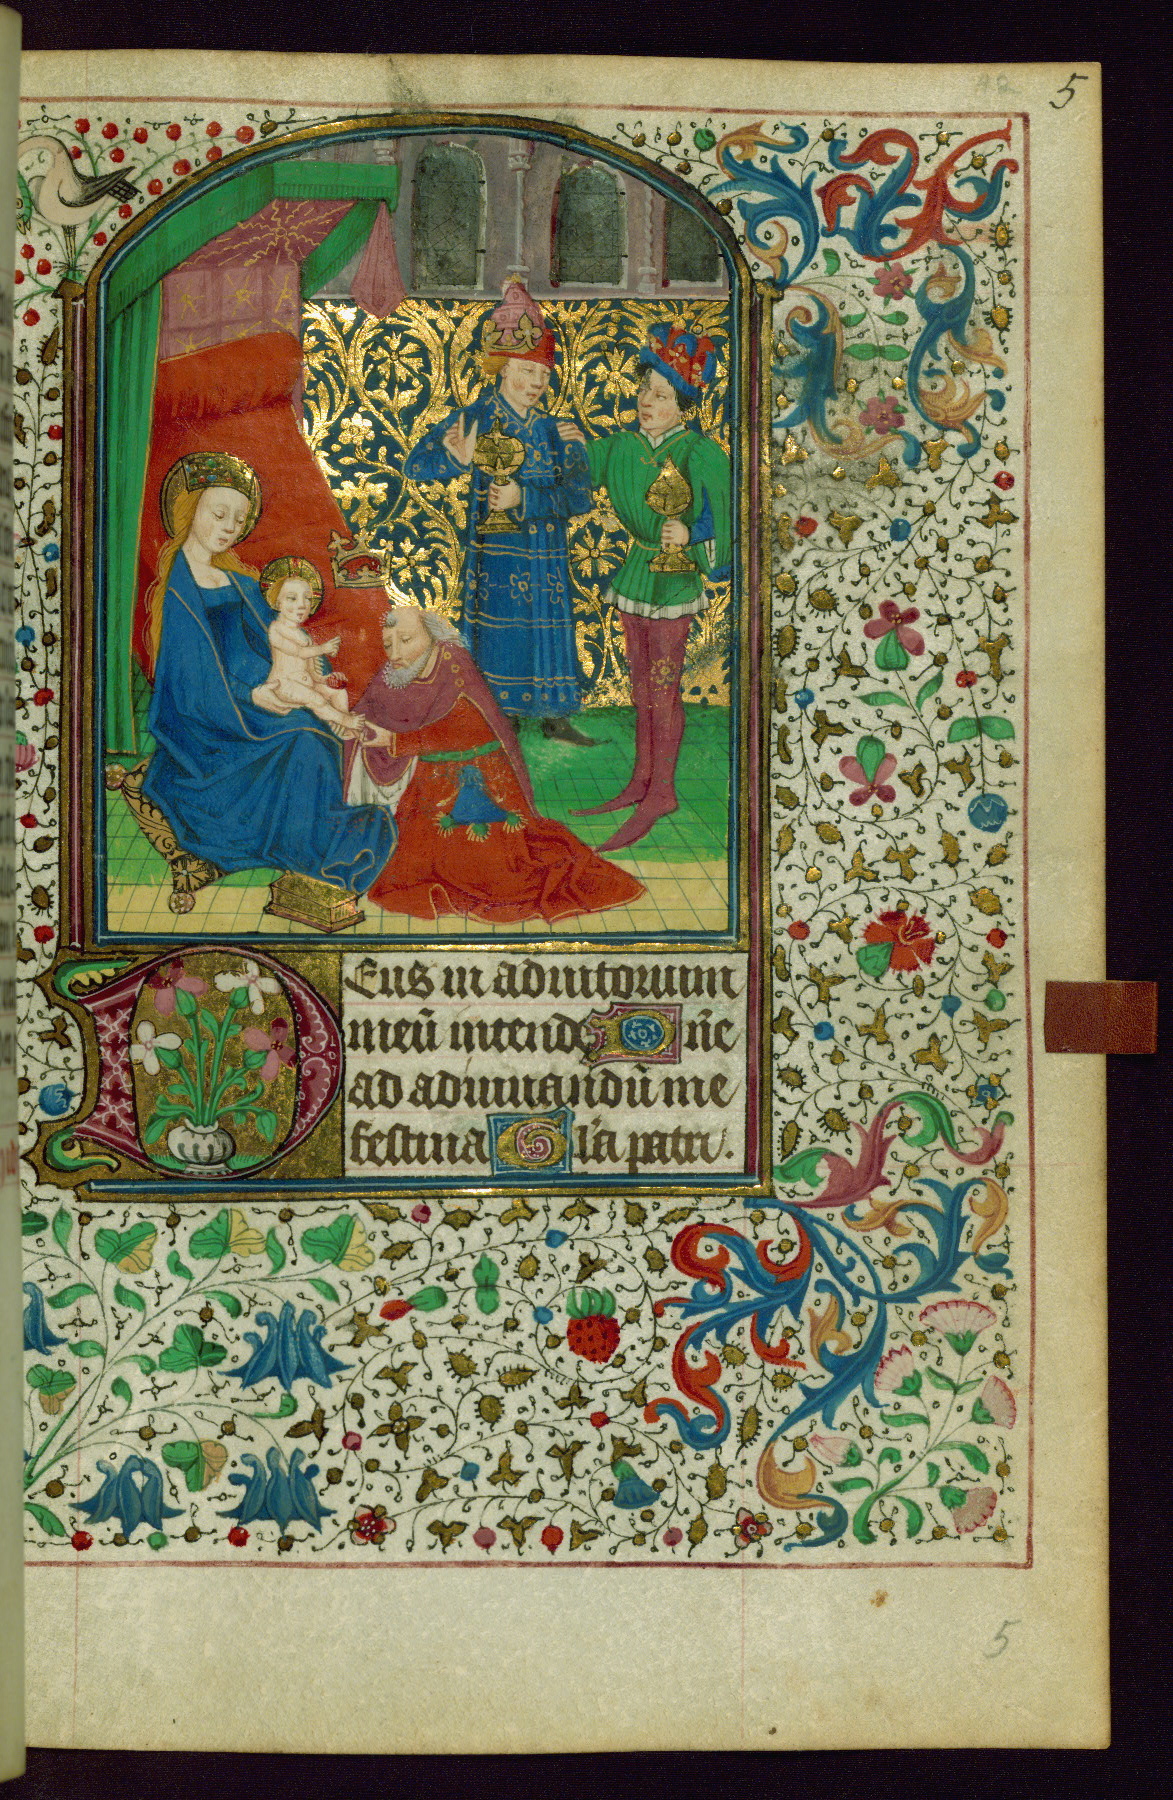 5
Deus in adiutorium
meū intende Dn̄e
ad adiuuandū me
festina Gl'a patri.
5